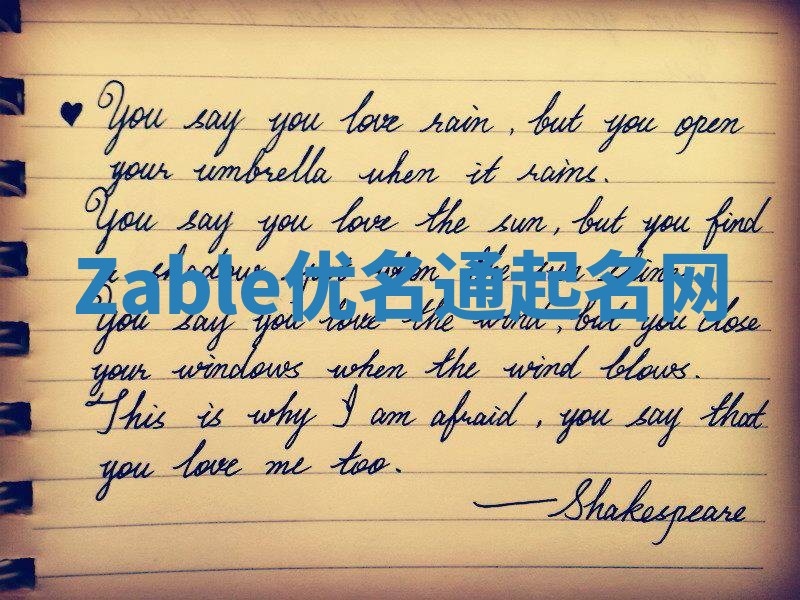 ♥ You say you love rain, but you open
your umbrella when it rains.
You say you love the sun, but you find
a shadow spot when the sun shines.
Zable优名通起名网
You say you love the wind, but you close
your windows when the wind blows.
This is why I am afraid, you say that
you love me too.
— Shakespeare